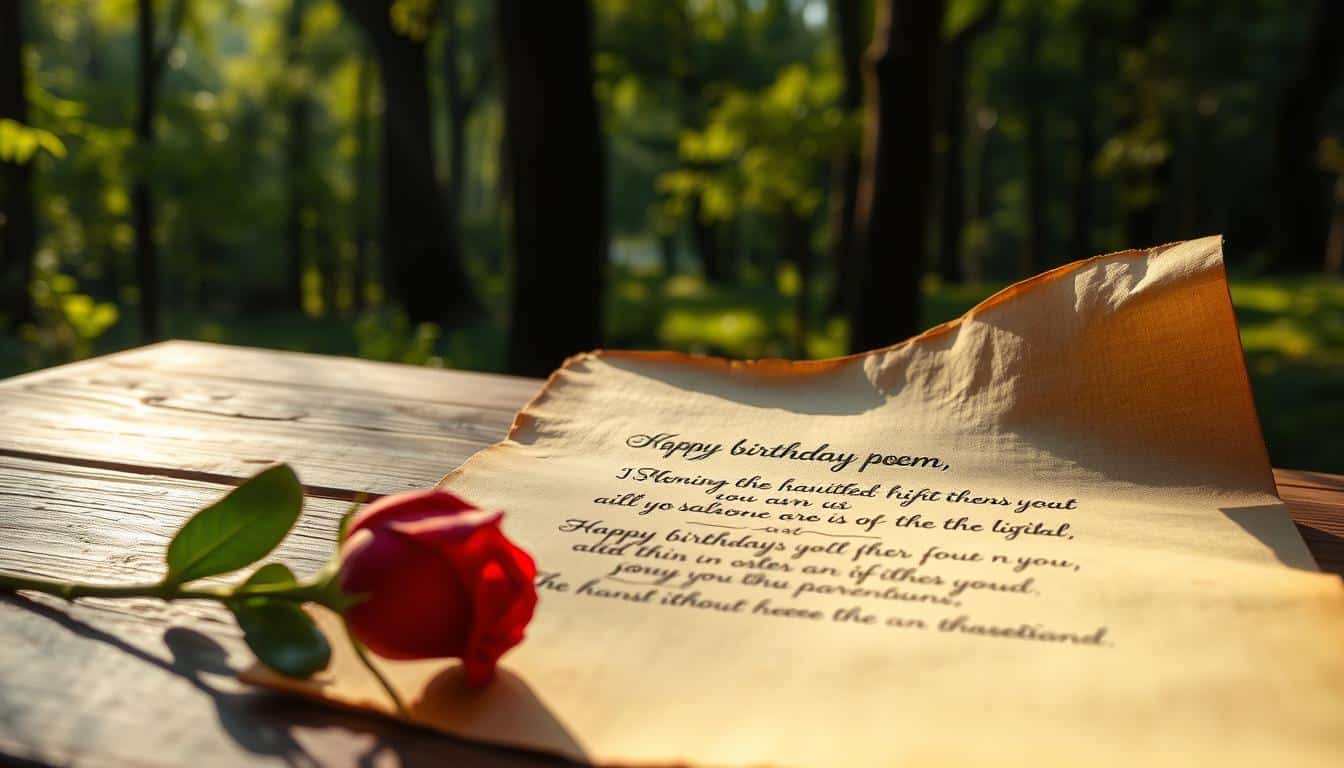 Happy birthday poem,
I Sloming the hauitled hifit thens yout
wou asn us
aill yo salxone are is of the the ligital,
Happy birthdays yoll fher fout n you,
and thin in osler an if ither youd.
jouy you thu parentuns,
he hanst ithout heese the an thasetiand.